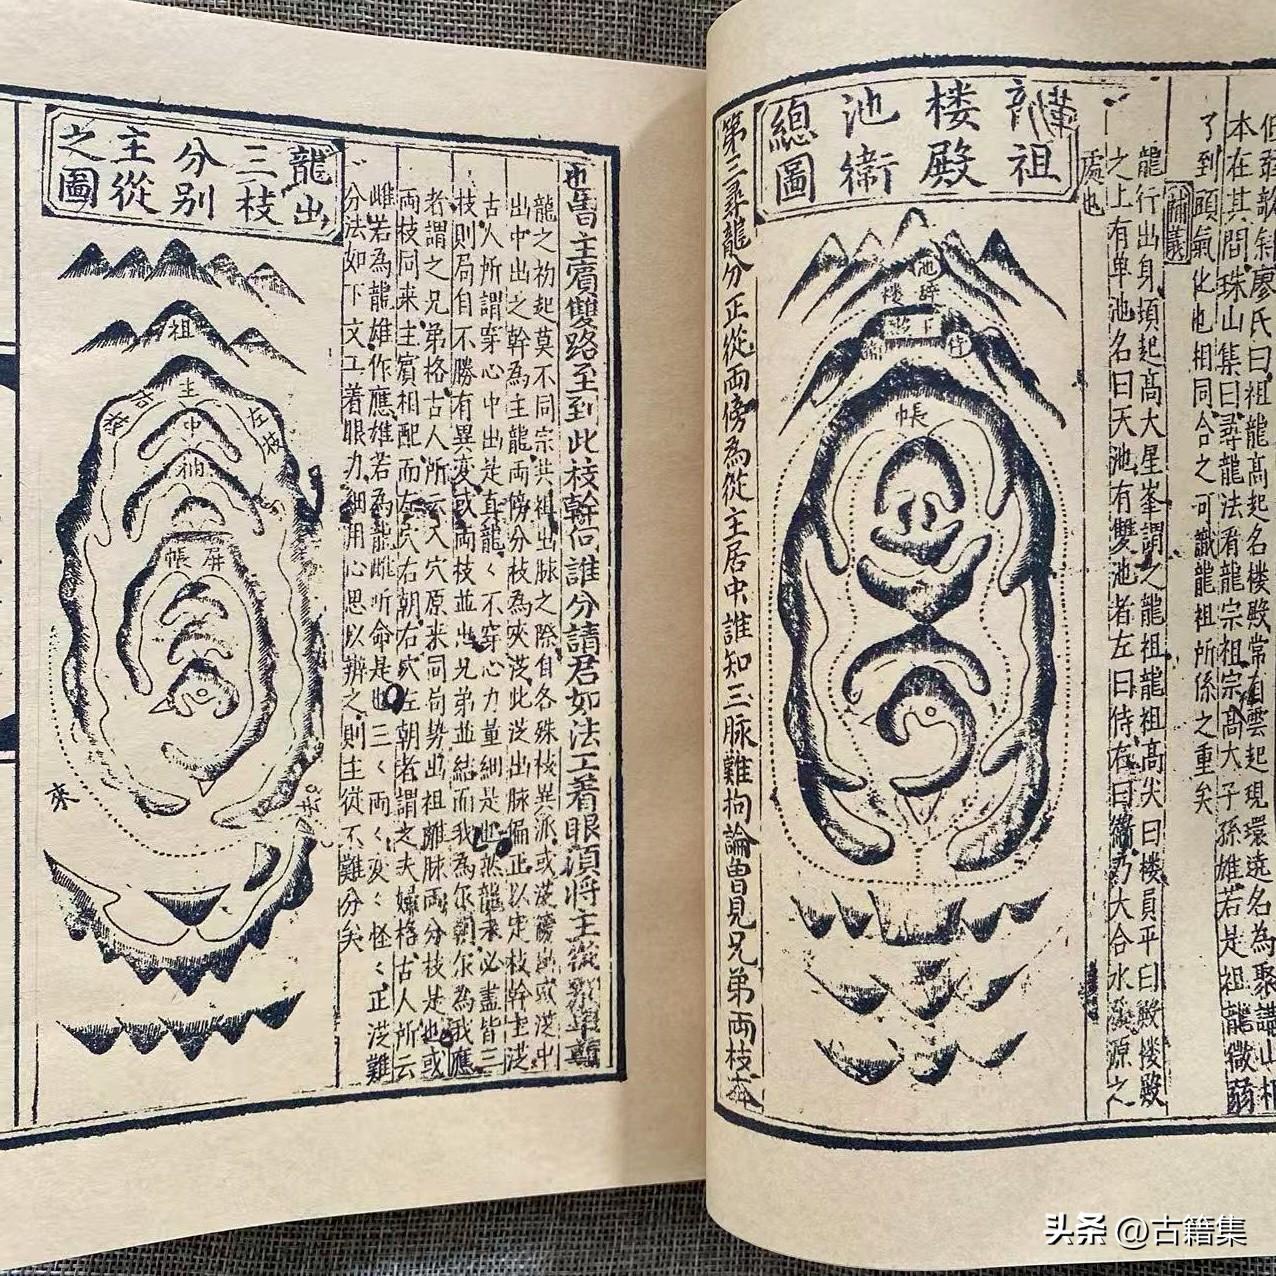 欹斜廖氏曰祖龍高起名楼殿常有雲起現環遶名為聚講山相
本在其間珠山集曰尋龍法看龍宗祖宗高大子孫雄若是祖龍微弱
了到頭氣化也相同合之可識龍祖所係之重矣
補義
龍行出身頃起高大星峯謂之龍祖龍祖高尖曰楼員平曰殿楼殿
之上有单池名曰天池有雙池者左曰侍右曰衛乃大合水源之
處也
祖
楼殿
池衛
總圖
池
楼
下
帳
第三尋龍分正從兩傍為從主居中誰知三脉難拘論曾見兄弟兩枝奔
主賓雙路至到此枝幹何誰分請君如法工着眼須將主從
龍之初起莫不同宗共祖出脉之際自各殊枝異派或從傍出或從出
出中出之幹為主龍兩傍分枝為夾從此從出脉偏正以定枝幹主從
古人所謂穿心中出是真龍く不穿心力量細是也然龍來必盡皆三
枝則局自不勝有異變或兩枝並出兄弟並結而我為尔朝尔為我應
者謂之兄弟格古人所云入穴原来同局勢出祖離脉兩分枝是也或
兩枝同来主賓相配而左穴右朝右穴左朝者謂之夫婦格古人所云
雌若為龍雄作應雄若為龍雌听命是也三く兩く变く怪く正從難
分法如下文工着眼力細用心思以辨之則主從不難分矣
龍出
三枝
分别
主從
之圖
祖
主
左枝
右
中
屏
帳
來
头条 @古籍集